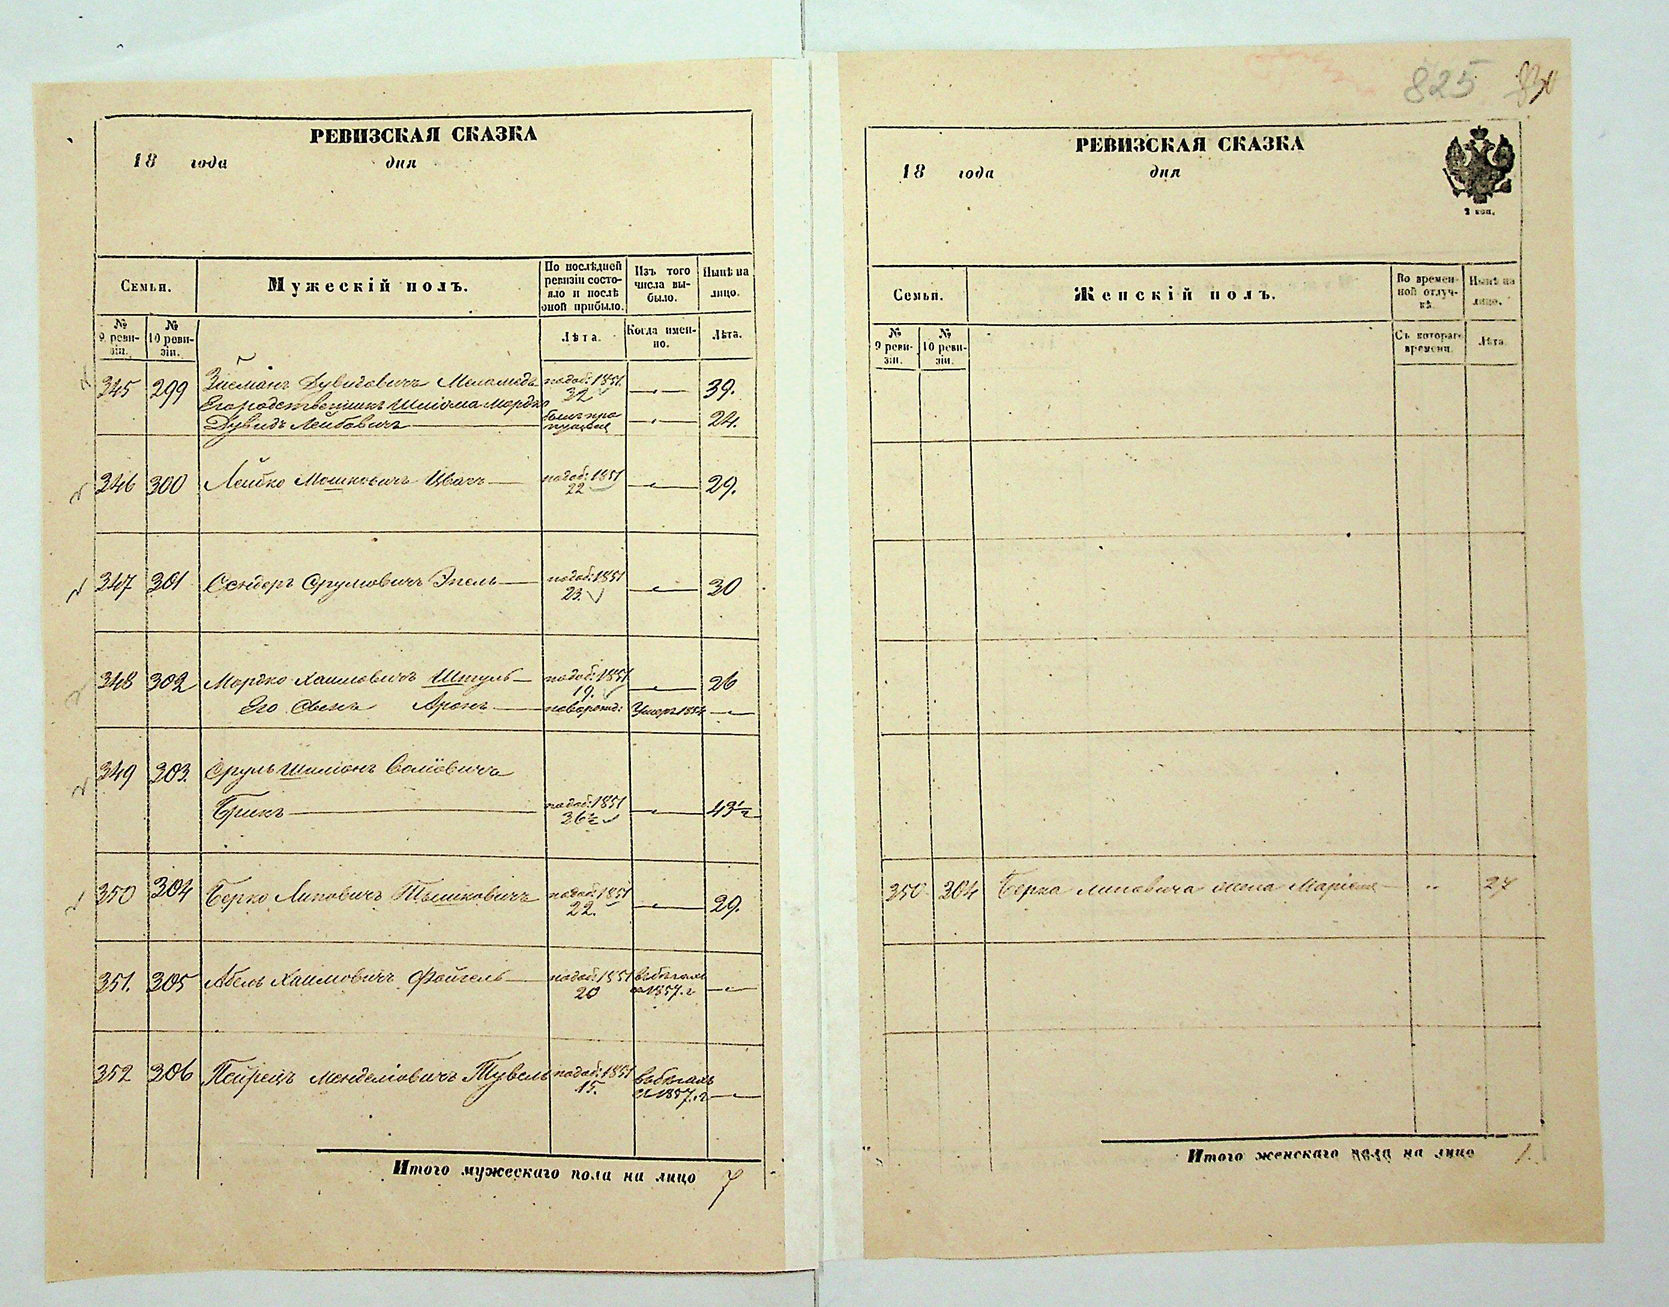 825 830
РЕВИЗСКАЯ СКАЗКА
18 года дня
Семьи.
Мужескій полъ.
По послѣдней ревизіи состояло и послѣ оной прибыло.
Изъ того числа выбыло.
Нынѣ на лицо.
№ 9 ревизіи.
№ 10 ревизіи.
Лѣта.
Когда именно.
Лѣта.
345 299 Зисманъ Дувидовичъ Меламедъ подоб: 1851. 32 39.
Его родственникъ Шліома Мордко
Дувидъ Лейбовичъ 24.
346 300 Лейбко Мошковичъ подоб: 1851 22 29.
347 301 Сендеръ Срулиовичъ Эпель подоб: 1851 23. 30
348 302 Мордко Хаимовичъ Штуль подоб: 1851 19. 26
Его Сынъ Аронъ новорожд: Умеръ 1854
349 303. Сруль Шиліонъ
Брикъ подоб: 1851 36½ 43½
350 304 Берко Липовичъ Тышковичъ подоб: 1851 22. 29.
351. 305 Абель Хаимовичъ Фойгель подоб: 1851 20 въ бѣгахъ съ 1857. г
352 306 Пейрецъ Менделіовичъ Тувель подоб: 1851 15. въ бѣгахъ съ 1857. г
Итого мужескаго пола на лицо 7
РЕВИЗСКАЯ СКАЗКА
18 года дня
2 коп.
Семьи.
Женскій полъ.
Во временной отлучкѣ.
Нынѣ на лицо.
№ 9 ревизіи.
№ 10 ревизіи.
Съ котораго времени.
Лѣта.
350 304 Берка Липовича жена Маріем 27
Итого женскаго пола на лицо 1.